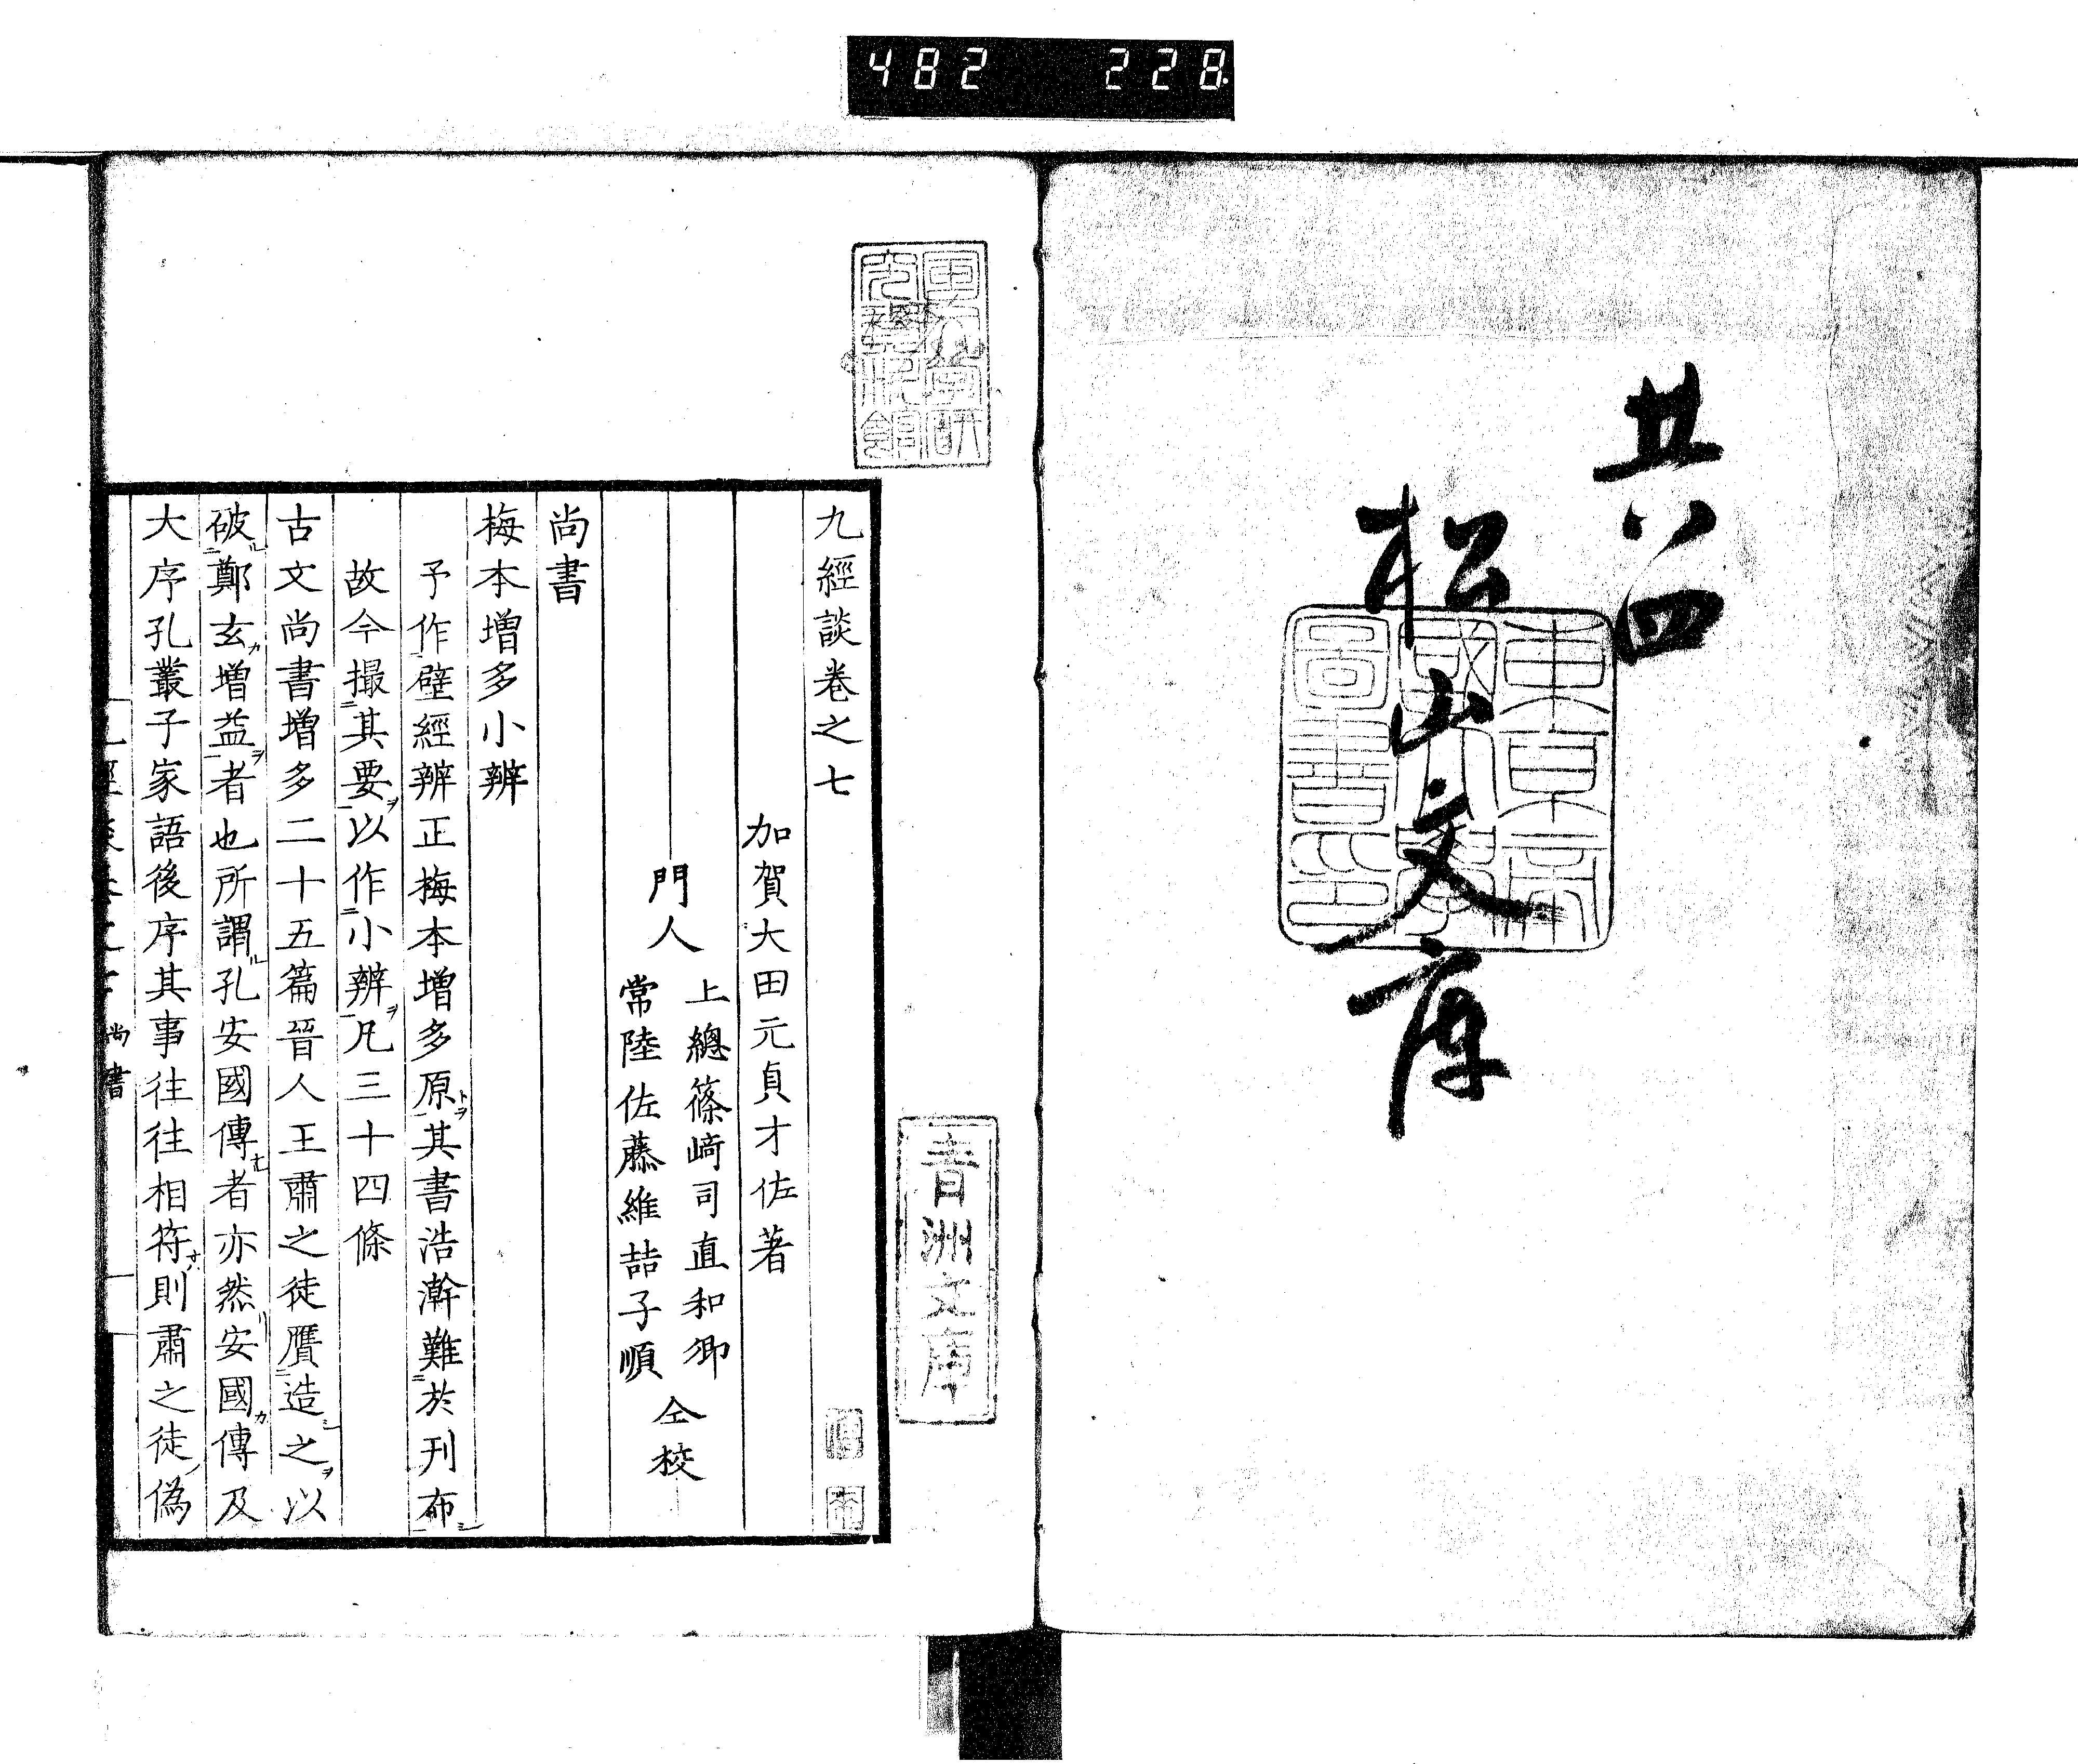 482 228
共四
松山文庫
東京帝國大學圖書印
青洲文庫
九經談卷之七
加賀大田元貞才佐著
門人
上總篠﨑司直和卿
常陸佐藤維喆子順
仝校
尚書
梅本增多小辨
予作壁經辨正梅本增多原其書浩瀚難於刊布
故今撮其要以作小辨凡三十四條
古文尚書增多二十五篇晉人王肅之徒贋造之以
破鄭玄增益者也所謂孔安國傳者亦然安國傳及
大序孔叢子家語後序其事往往相符則肅之徒偽
尚書